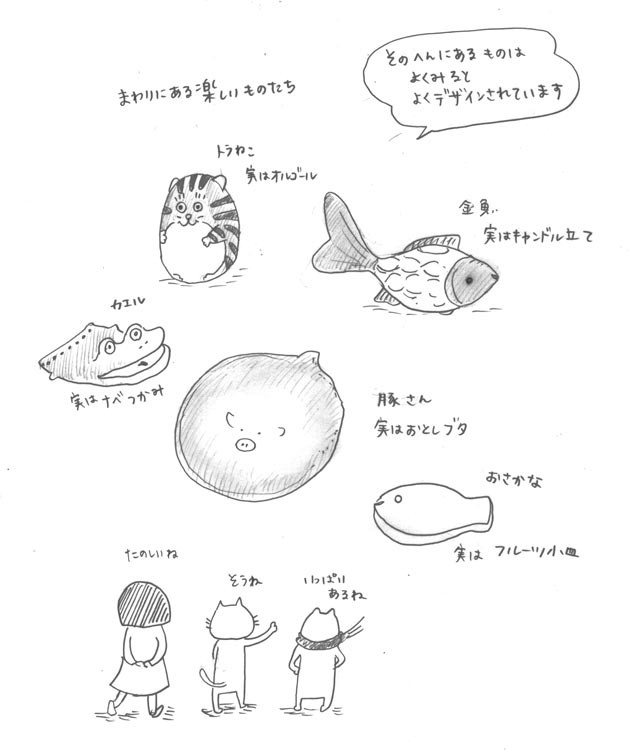 まわりにある楽しいものたち
そのへんにあるものは
よくみると
よくデザインされています
トラねこ
実はオルゴール
金魚
実はキャンドル立て
カエル
実はナベつかみ
豚さん
実はおとしブタ
おさかな
実は フルーツ小皿
たのしいね
そうね
いっぱい
あるね